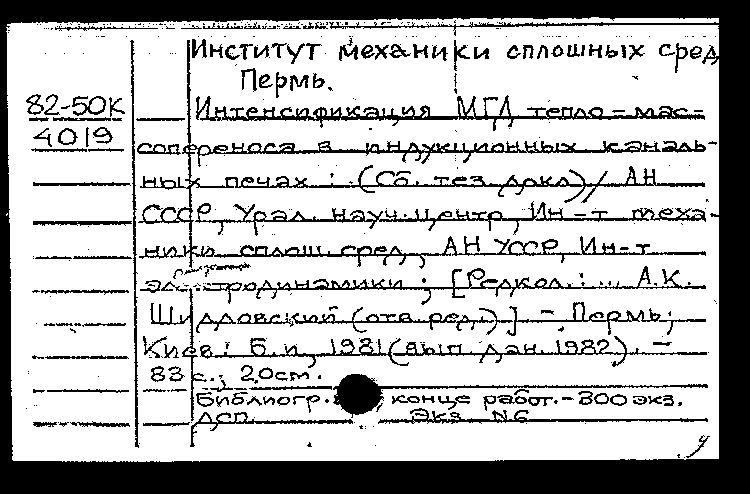 Институт механики сплошных сред
Пермь.
82-50К
4019
Интенсификация МГД тепло-мас-
сопереноса в индукционных каналь-
ных печах : (Сб. тез. докл) / АН
СССР, Урал. науч. центр, Ин-т меха-
ники сплош. сред, АН УССР, Ин-т
электродинамики ; [Редкол. : ... А.К.
Шидловский (отв. ред.)]. - Пермь;
Киев : Б. и., 1981 (вып. дан. 1982). -
83 с.; 20 см.
Библиогр. конце работ. - 300 экз.
ДСП Экз N6